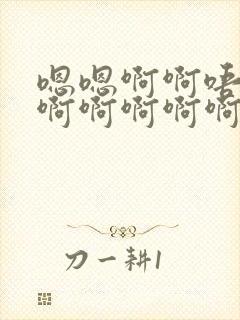 嗯嗯啊啊唔
啊啊啊啊啊
刀一耕1